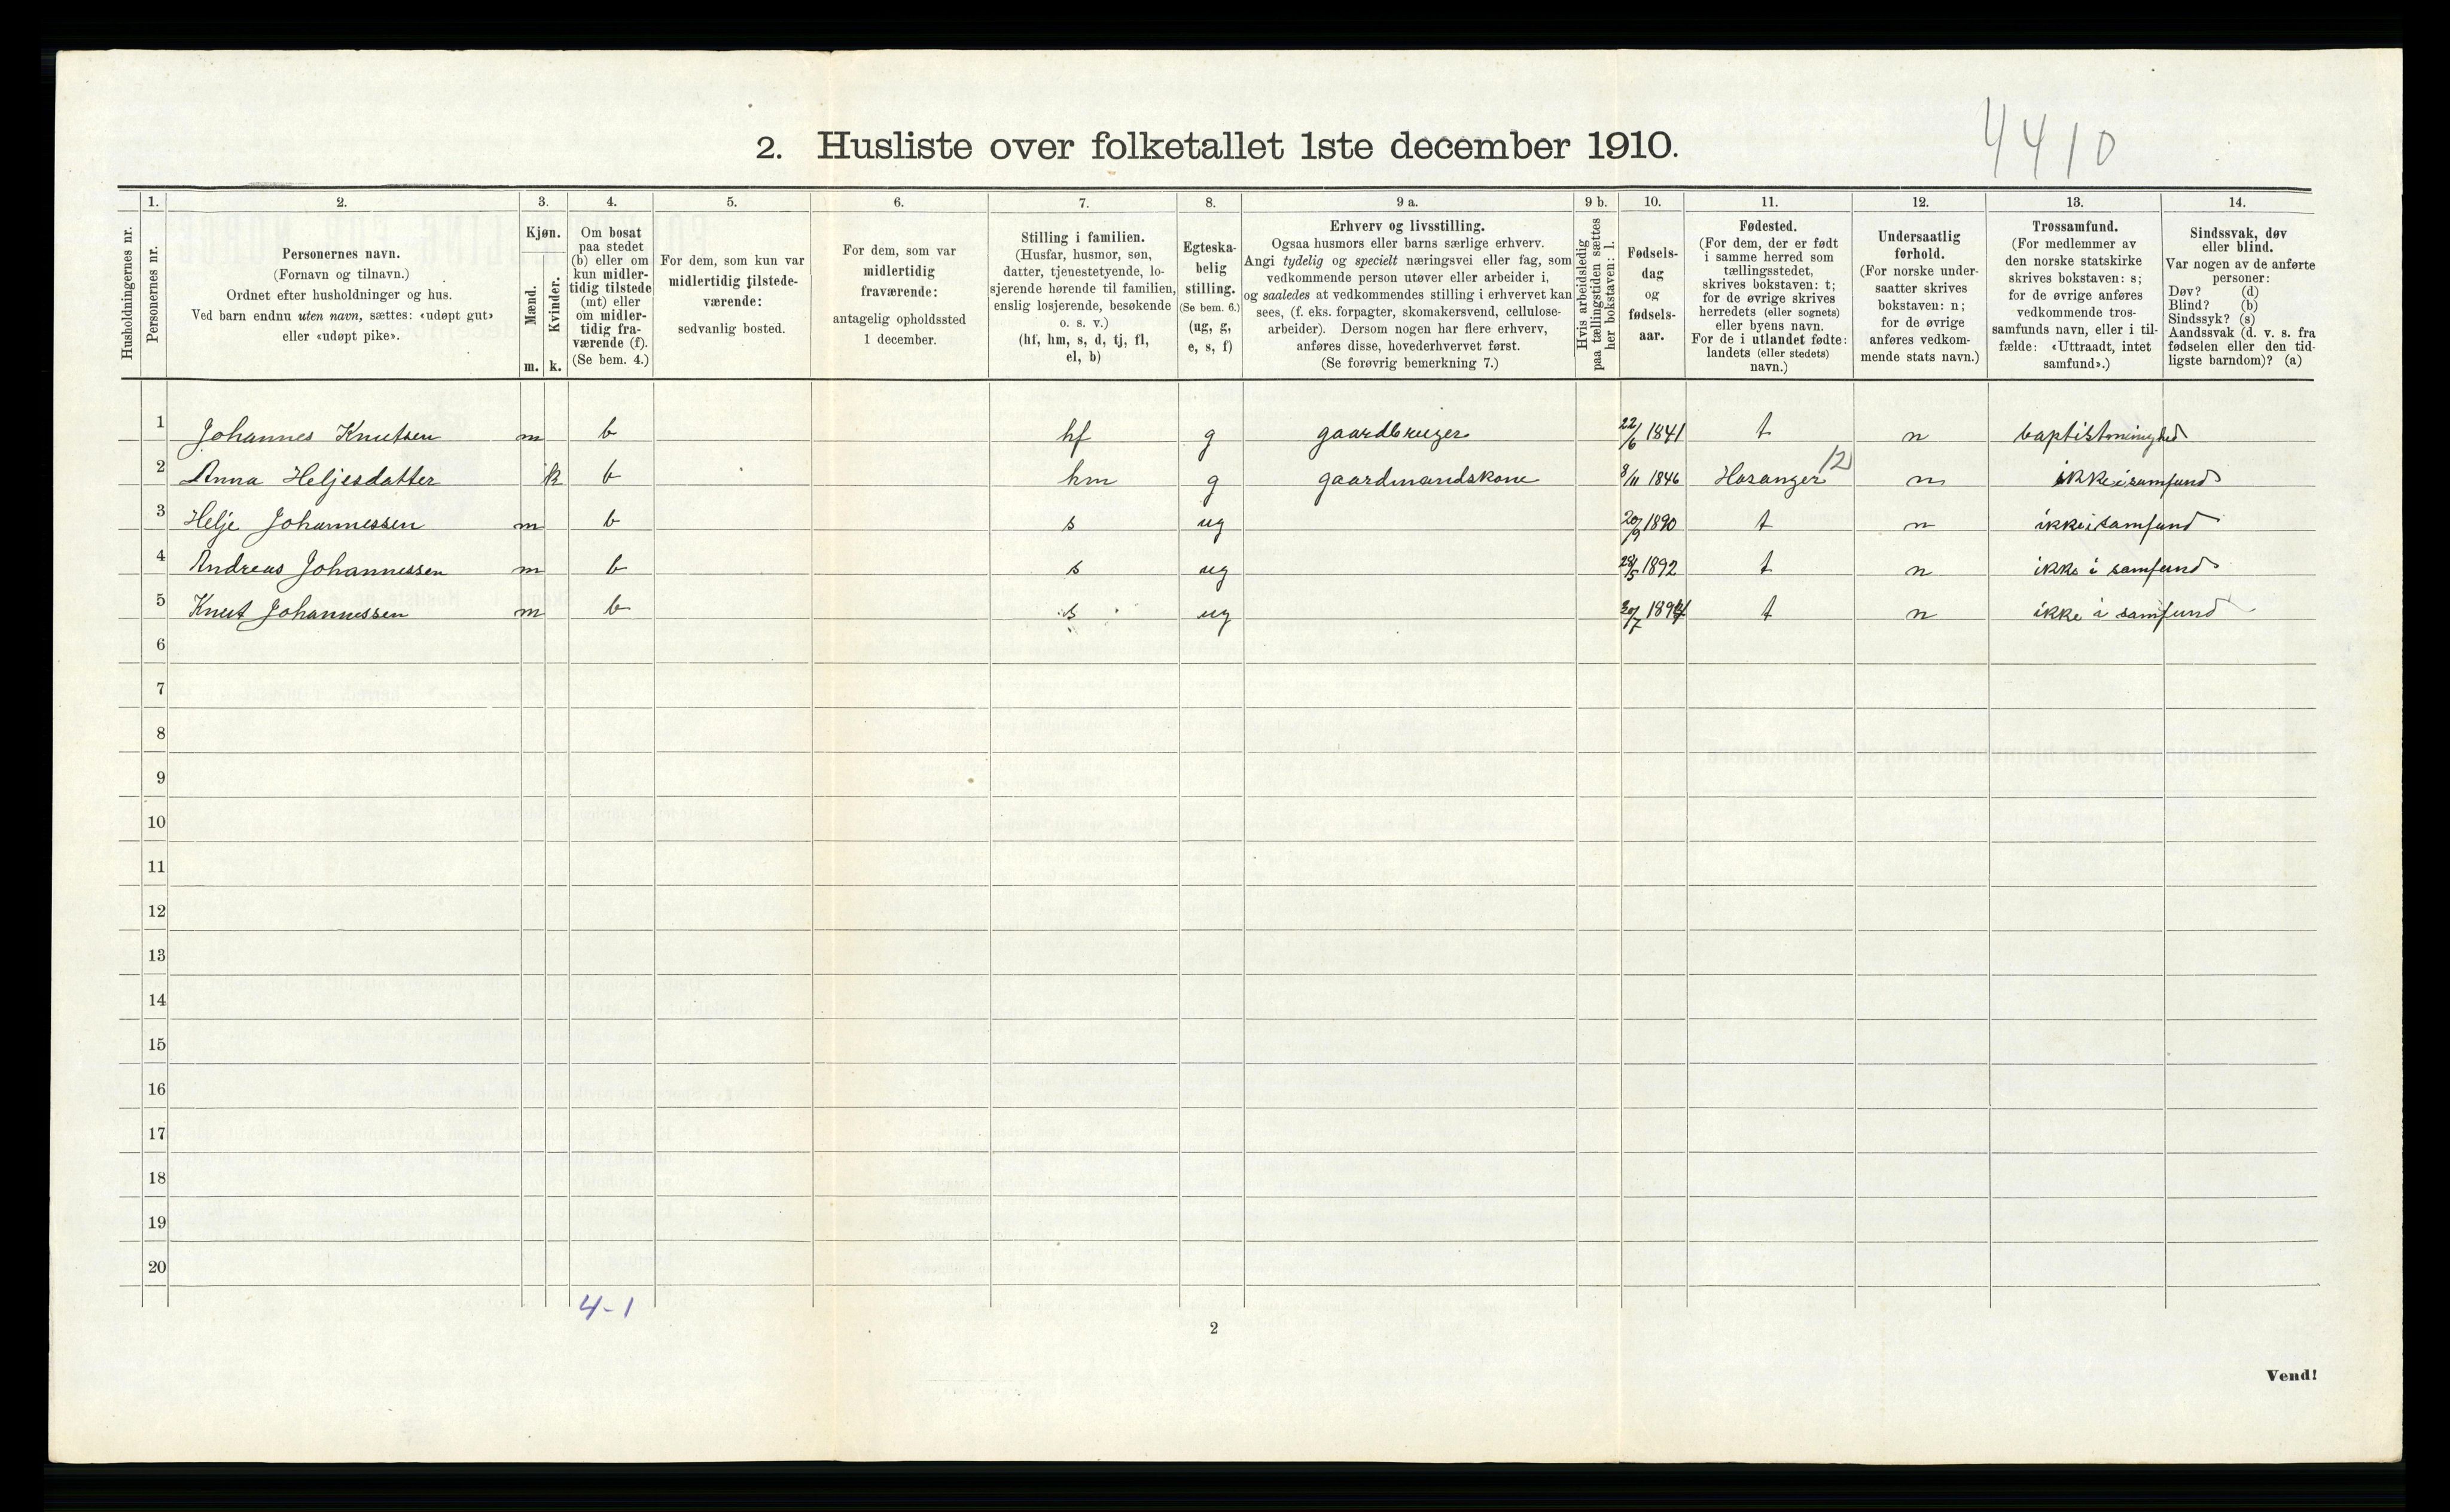 4410
2. Husliste over folketallet 1ste december 1910.
Husholdningernes nr.
1. Personernes nr.
2. Personernes navn.
(Fornavn og tilnavn.)
Ordnet efter husholdninger og hus.
Ved barn endnu uten navn, sættes: «udøpt gut»
eller «udøpt pike».
3. Kjøn.
Mænd. Kvinder.
m. k.
4. Om bosat
paa stedet
(b) eller om
kun midler-
tidig tilstede
(mt) eller
om midler-
tidig fra-
værende (f).
(Se bem. 4.)
5. For dem, som kun var
midlertidig tilstede-
værende:
sedvanlig bosted.
6. For dem, som var
midlertidig
fraværende:
antagelig opholdssted
1 december.
7. Stilling i familien.
(Husfar, husmor, søn,
datter, tjenestetyende, lo-
sjerende hørende til familien,
enslig losjerende, besøkende
o. s. v.)
(hf, hm, s, d, tj, fl,
el, b)
8. Egteska-
belig
stilling.
(Se bem. 6.)
(ug, g,
e, s, f)
9 a. Erhverv og livsstilling.
Ogsaa husmors eller barns særlige erhverv.
Angi tydelig og specielt næringsvei eller fag, som
vedkommende person utøver eller arbeider i,
og saaledes at vedkommendes stilling i erhvervet kan
sees, (f. eks. forpagter, skomakersvend, cellulose-
arbeider). Dersom nogen har flere erhverv,
anføres disse, hovederhvervet først.
(Se forøvrig bemerkning 7.)
9 b. Hvis arbeidsledig
paa tællingstiden sættes
her bokstaven: l.
10. Fødsels-
dag
og
fødsels-
aar.
11. Fødested.
(For dem, der er født
i samme herred som
tællingsstedet,
skrives bokstaven: t;
for de øvrige skrives
herredets (eller sognets)
eller byens navn.
For de i utlandet fødte:
landets (eller stedets)
navn.)
12. Undersaatlig
forhold.
(For norske under-
saatter skrives
bokstaven: n;
for de øvrige
anføres vedkom-
mende stats navn.)
13. Trossamfund.
(For medlemmer av
den norske statskirke
skrives bokstaven: s;
for de øvrige anføres
vedkommende tros-
samfunds navn, eller i til-
fælde: «Uttraadt, intet
samfund».)
14. Sindssvak, døv
eller blind.
Var nogen av de anførte
personer:
Døv? (d)
Blind? (b)
Sindssyk? (s)
Aandssvak (d. v. s. fra
fødselen eller den tid-
ligste barndom)? (a)
1 Johannes Knutsen m b hf g gaardbruger 22/6 1841 t n baptistmenighed
2 Anna Heljesdatter k b hm g gaardmandskone 8/11 1846 Hosanger 12 n ikke i samfund
3 Helje Johannessen m b s ug 20/9 1890 t n ikke i samfund
4 Andreas Johannessen m b s ug 28/5 1892 t n ikke i samfund
5 Knut Johannessen m b s ug 30/7 1894 t n ikke i samfund
6
7
8
9
10
11
12
13
14
15
16
17
18
19
20
4-1
2
Vend!